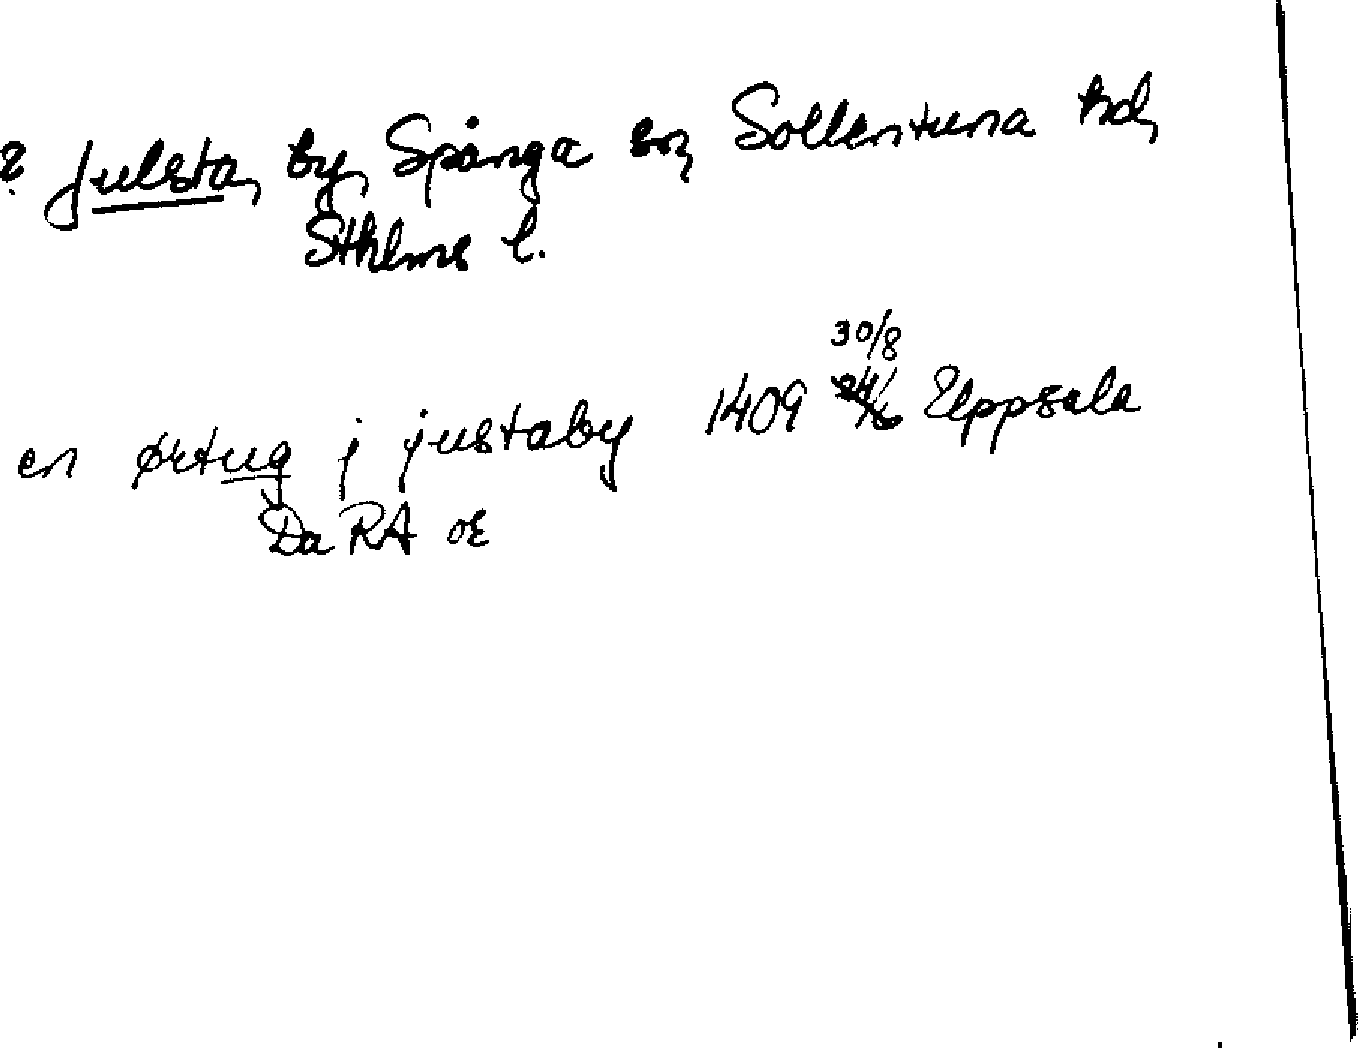 ? Julsta, by, Spånga sn, Sollentuna hd,
Sthlms l.
30/8
en ørtug j justaby 1409 Uppsala
Da RA or